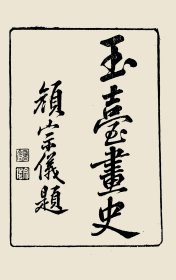 玉臺畫史
顏宗儀題